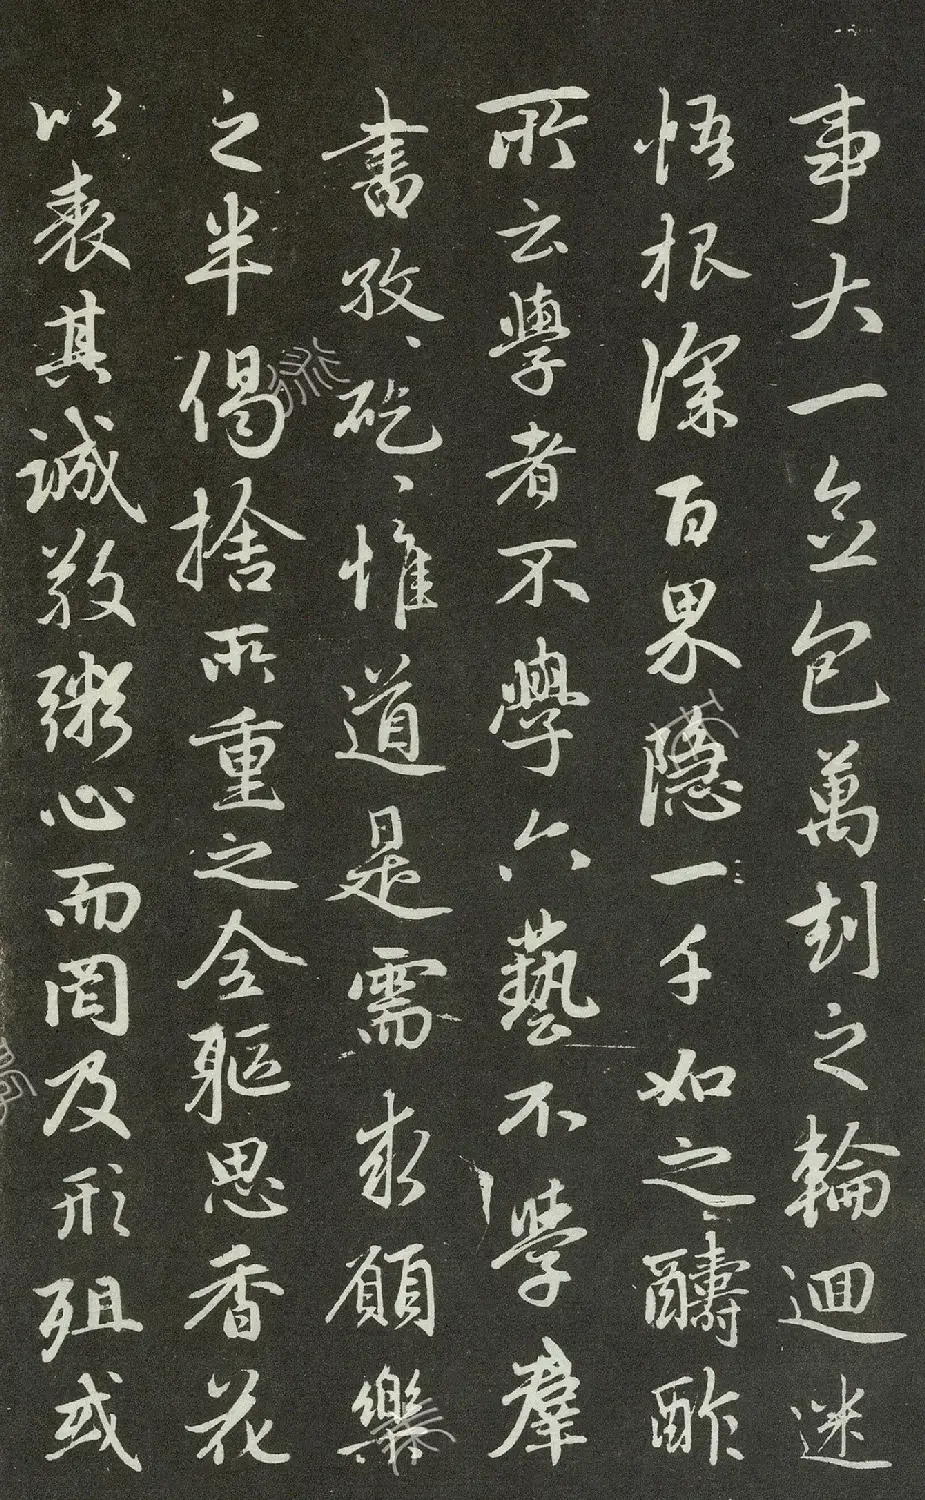 事大一念包萬刧之輪迴迷
悟根深百界隱一千如之醻酢
所云學者不學六藝不學羣
書孜、矻、惟道是需求願樂
之半偈捨所重之全軀思香花
以表其誠敬粥心而罔及形殂或